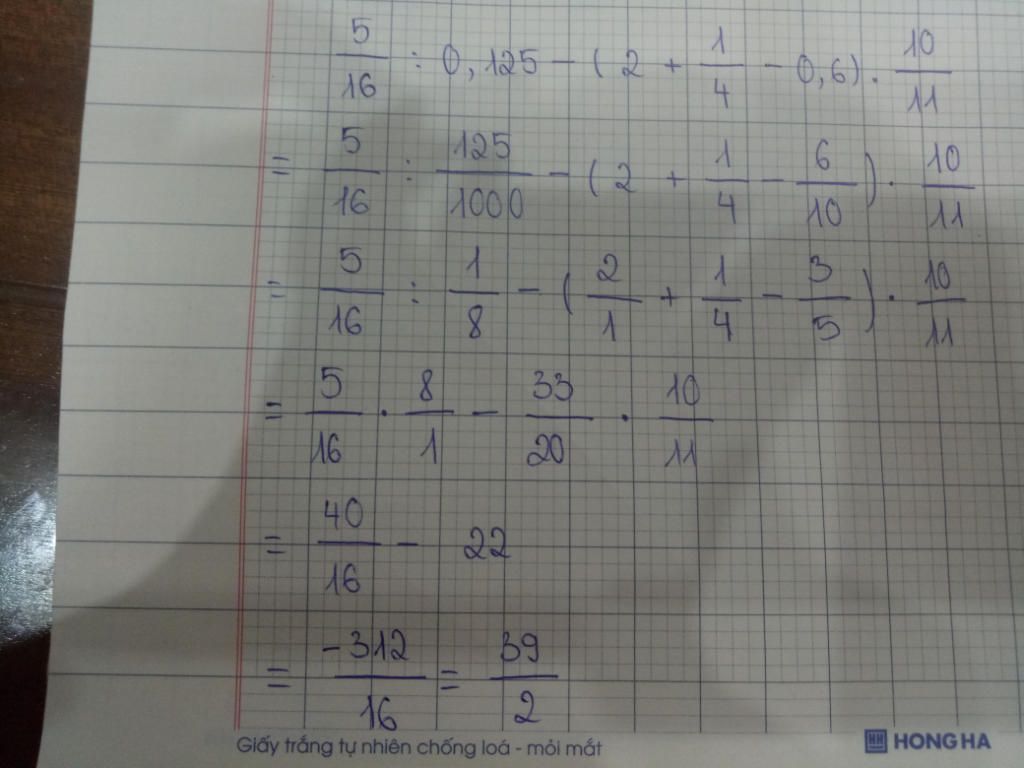 5/16 : 0,125 - ( 2 + 1/4 - 0,6) . 10/11
= 5/16 : 125/1000 - ( 2 + 1/4 - 6/10 ) . 10/11
= 5/16 : 1/8 - ( 2/1 + 1/4 - 3/5 ) . 10/11
= 5/16 . 8/1 - 33/20 . 10/11
= 40/16 - 22
= -312/16 = 39/2
Giấy trắng tự nhiên chống loá - mỏi mắt
HH HONG HA